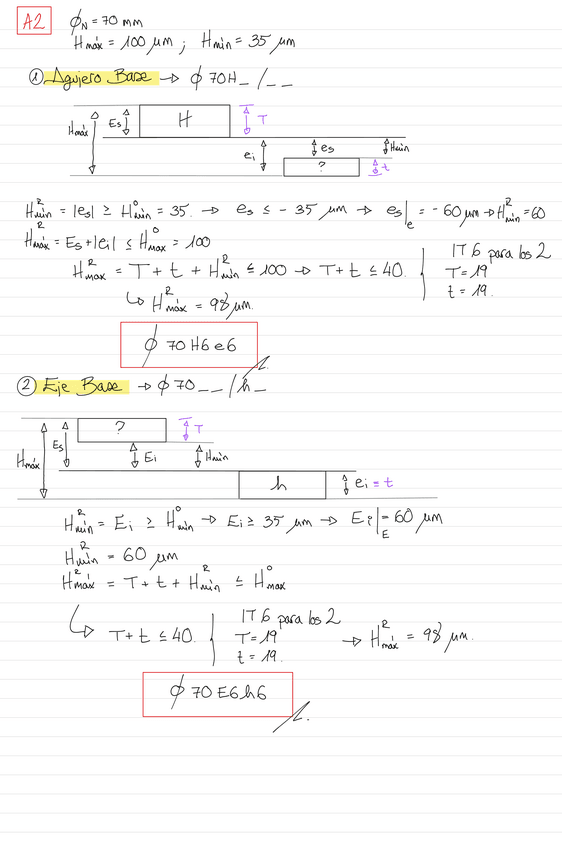 A2
ϕN = 70 mm
Hmáx = 100 μm ; Hmín = 35 μm
① Agujero Base → ϕ 70H_ /_ _
Hmáx Es H T
ei es Hmín
? t
HmínR = |es| ≥ Hmín0 = 35. → es ≤ - 35 μm → es|e = - 60 μm → HmínR = 60
HmáxR = Es + |ei| ≤ Hmax0 = 100
HmáxR = T + t + HmínR ≤ 100 → T + t ≤ 40. { IT 6 para los 2
T = 19
t = 19.
↳ HmáxR = 98 μm.
ϕ 70 H6 e6
② Eje Base → ϕ 70 _ _ / h _
Hmáx Es ? T
Ei Hmín
h ei = t
HmínR = Ei ≥ Hmín0 → Ei ≥ 35 μm → Ei|E = 60 μm
HmínR = 60 μm
HmáxR = T + t + HmínR ≤ Hmax0
↳ T + t ≤ 40. { IT 6 para los 2
T = 19
t = 19.
→ HmáxR = 98 μm.
ϕ 70 E6 h6